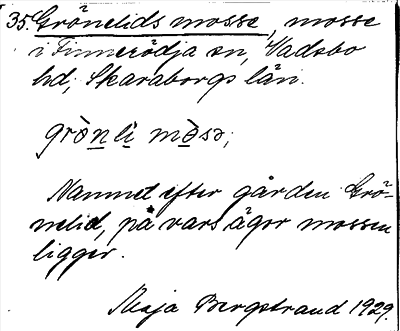 35. Grönelids mosse, mosse
i Finnerödja sn, Vadsbo
hd, Skaraborgs län.
grö̀nli mòsə;
Namnet efter gården Grö-
nelid, på vars ägor mossen
ligger.
Maja Bergstrand 1929.